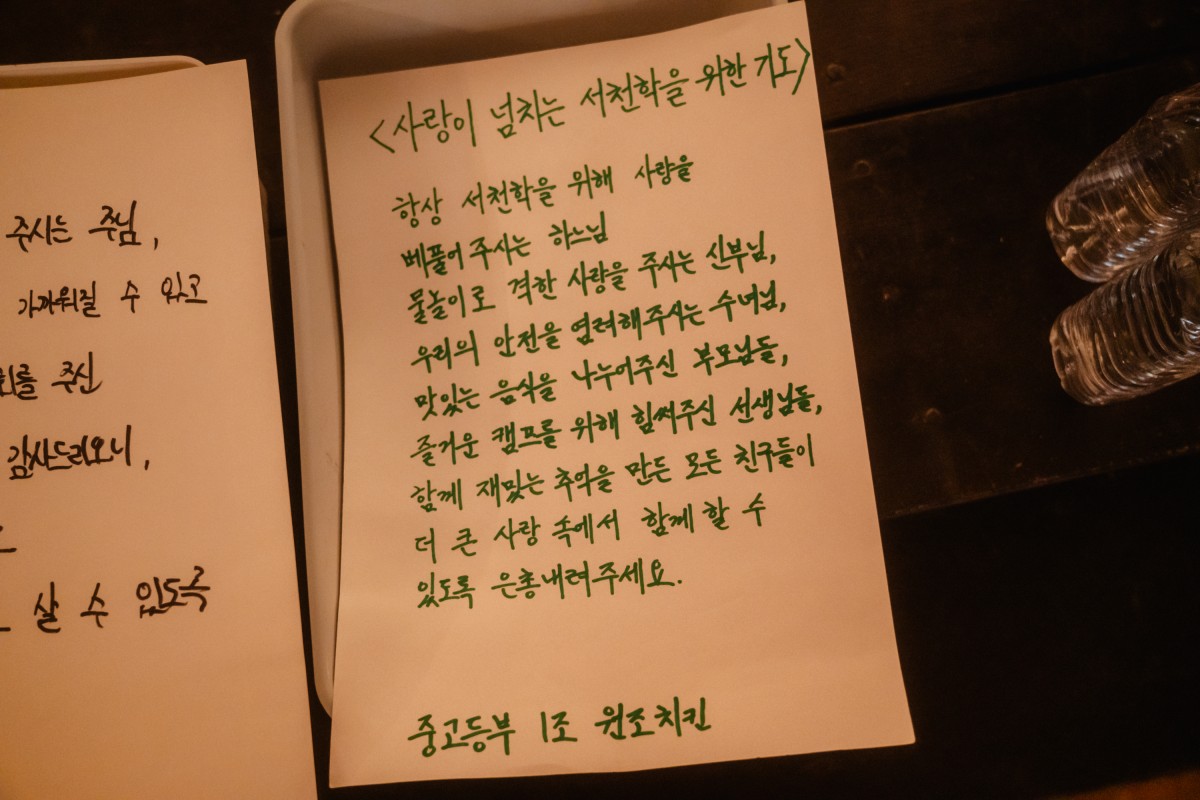 주시는 주님,
가까워질 수 있고
를 주신
감사드리오니,
살 수 있도록
<사랑이 넘치는 서천학을 위한 기도>
항상 서천학을 위해 사랑을
베풀어 주시는 하느님
물놀이로 격한 사랑을 주시는 신부님,
우리의 안전을 염려해주시는 수녀님,
맛있는 음식을 나누어주신 부모님들,
즐거운 캠프를 위해 힘써주신 선생님들,
함께 재밌는 추억을 만든 모든 친구들이
더 큰 사랑 속에서 함께 할 수
있도록 은총내려주세요.
중고등부 1조 원조치킨